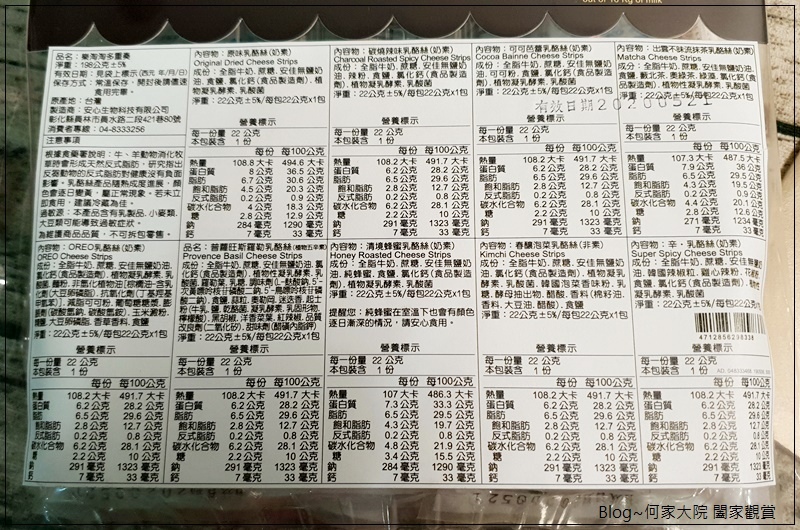 品名：樂淘淘多重奏
淨重：198公克±5%
有效日期：見袋上標示(西元 年/月/日)
保存方式：常溫保存，開封後請儘速
食用完畢。
原產地：台灣
製造商：安心生物科技有限公司
彰化縣員林市員水路二段421巷80號
消費者專線：04-8333256
注意事項
根據食藥署說明：牛、羊動物消化牧
草時會形成天然反式脂肪，研究指出
反芻動物的反式脂肪對健康沒有負面
影響。乳酪絲產品隨熟成度進展，顏
色會逐日變黃，屬正常現象。若未立
即食用，建議冷藏為佳。
過敏源：本產品含有乳製品、小麥類、
大豆類可能導致過敏症狀。
為維護商品品質，不可拆包零售。
內容物：原味乳酪絲(奶素)
Original Dried Cheese Strips
成份：全脂牛奶、蔗糖、安佳無鹽奶
油、食鹽、氯化鈣(食品製造劑)、植
物性凝乳酵素、乳酸菌
淨重：22公克±5%/每包22公克x1包
營養標示
每一份量 22 公克
本包裝含 1 份
每份 每100公克
熱量 108.8 大卡 494.6 大卡
蛋白質 8 公克 36.5 公克
脂肪 6.7 公克 30.6 公克
飽和脂肪 4.5 公克 20.3 公克
反式脂肪 0.2 公克 0.9 公克
碳水化合物 4 公克 18.3 公克
糖 2.8 公克 12.9 公克
鈉 284 毫克 1290 毫克
鈣 7 毫克 33 毫克
內容物：碳燒辣味乳酪絲(奶素)
Charcoal Roasted Spicy Cheese Strips
成份：全脂牛奶、蔗糖、安佳無鹽奶
油、辣粉、食鹽、氯化鈣(食品製造
劑)、植物性凝乳酵素、乳酸菌
淨重：22公克±5%/每包22公克x1包
營養標示
每一份量 22 公克
本包裝含 1 份
每份 每100公克
熱量 108.2 大卡 491.7 大卡
蛋白質 6.2 公克 28.2 公克
脂肪 6.5 公克 29.6 公克
飽和脂肪 2.8 公克 12.7 公克
反式脂肪 0.2 公克 0.8 公克
碳水化合物 6.2 公克 28.1 公克
糖 2.2 公克 10 公克
鈉 291 毫克 1323 毫克
鈣 7 毫克 33 毫克
內容物：可可芭蕾乳酪絲(奶素)
Cocoa Bainne Cheese Strips
成份：全脂牛奶、蔗糖、安佳無鹽奶
油、可可粉、食鹽、氯化鈣(食品製造
劑)、植物性凝乳酵素、乳酸菌
淨重：22公克±5%/每包22公克x1包
有效日期20200521
營養標示
每一份量 22 公克
本包裝含 1 份
每份 每100公克
熱量 108.2 大卡 491.7 大卡
蛋白質 6.2 公克 28.2 公克
脂肪 6.5 公克 29.6 公克
飽和脂肪 2.8 公克 12.7 公克
反式脂肪 0.2 公克 0.8 公克
碳水化合物 6.2 公克 28.1 公克
糖 2.2 公克 10 公克
鈉 291 毫克 1323 毫克
鈣 7 毫克 33 毫克
內容物：出雲不昧流抹茶乳酪絲(奶素)
Matcha Cheese Strips
成份：全脂牛奶、蔗糖、安佳無鹽奶
食鹽、氯化鈣(食
品製造劑)、植物性凝乳酵素、乳酸菌
淨重：22公克±5%/每包22公克x1包
營養標示
每一份量 22 公克
本包裝含 1 份
每份 每100公克
熱量 107.3 大卡 487.5 大卡
蛋白質 7.9 公克 36 公克
脂肪 6.5 公克 29.5 公克
飽和脂肪 4.3 公克 19.5 公克
反式脂肪 0.2 公克 0.9 公克
碳水化合物 4.4 公克 20.1 公克
糖 2.8 公克 12.6 公克
鈉 271 毫克 1234 毫克
鈣 7 毫克 33 毫克
內容物：OREO乳酪絲(奶素)
OREO Cheese Strips
營養標示
每一份量 22 公克
本包裝含 1 份
每份 每100公克
熱量 108.2 大卡 491.7 大卡
蛋白質 6.2公克 28.2 公克
脂肪 6.5公克 29.6 公克
飽和脂肪 2.8 公克 12.7 公克
反式脂肪 0.2 公克 0.8 公克
碳水化合物 6.2公克 28.1 公克
糖 2.2公克 10 公克
鈉 291 毫克 1323 毫克
鈣 7 毫克 33 毫克
品名：普羅旺斯羅勒乳酪絲(植物五辛素)
Provence Basil Cheese Strips
淨重：22公克±5%/每包22公克x1包
營養標示
每一份量 22 公克
本包裝含 1 份
每份 每100公克
熱量 108.2 大卡 491.7 大卡
蛋白質 6.2公克 28.2 公克
脂肪 6.5公克 29.6 公克
飽和脂肪 2.8 公克 12.7 公克
反式脂肪 0.2 公克 0.8 公克
碳水化合物 6.2公克 28.1 公克
糖 2.2公克 10 公克
鈉 291 毫克 1323 毫克
鈣 7 毫克 33 毫克
內容物：清境蜂蜜乳酪絲(奶素)
Honey Roasted Cheese Strips
成份：全脂牛奶、蔗糖、安佳無鹽奶
油、純蜂蜜、食鹽、氯化鈣(食品製造
劑)、植物性凝乳酵素、乳酸菌
淨重：22公克±5%/每包22公克x1包
提醒您：純蜂蜜在室溫下也會有顏色
逐日漸深的情況，請安心食用。
營養標示
每一份量 22 公克
本包裝含 1 份
每份 每100公克
熱量 107 大卡 486.3 大卡
蛋白質 7.3公克 33.3 公克
脂肪 6.5公克 29.5 公克
飽和脂肪 4.3 公克 19.7 公克
反式脂肪 0.2 公克 0.8 公克
碳水化合物 4.8公克 21.9 公克
糖 3.4公克 15.5 公克
鈉 284 毫克 1290 毫克
鈣 7 毫克 33 毫克
內容物：春釀泡菜乳酪絲(非素)
Kimchi Cheese Strips
成份：全脂牛奶、蔗糖、安佳無鹽奶
油、氯化鈣(食品製造劑)、植物性凝乳
酵素、乳酸菌、韓國泡菜香味粉、乳
糖、酵母抽出物、醋酸、香料(棉籽油、
香料、大豆油、醋酸)、食鹽
淨重：22公克±5%/每包22公克x1包
營養標示
每一份量 22 公克
本包裝含 1 份
每份 每100公克
熱量 108.2 大卡 491.7 大卡
蛋白質 6.2公克 28.2 公克
脂肪 6.5公克 29.6 公克
飽和脂肪 2.8 公克 12.7 公克
反式脂肪 0.2 公克 0.8 公克
碳水化合物 6.2公克 28.1 公克
糖 2.2公克 10 公克
鈉 291 毫克 1323 毫克
鈣 7 毫克 33 毫克
內容物：辛・乳酪絲(奶素)
Super Spicy Cheese Strips
成份：全脂牛奶、蔗糖、安佳無鹽奶
4712856298338
營養標示
每一份量 22 公克
本包裝含 1 份
每份 每100公克
熱量 108.2 大卡 491.7 大卡
蛋白質 6.2公克 28.2 公克
脂肪 6.5公克 29.6 公克
飽和脂肪 2.8 公克 12.7 公克
反式脂肪 0.2 公克 0.8 公克
碳水化合物 6.2公克 28.1 公克
糖 2.2公克 10 公克
鈉 291 毫克 1323 毫克
鈣 7 毫克 33 毫克
Blog~何家大院 闔家觀賞